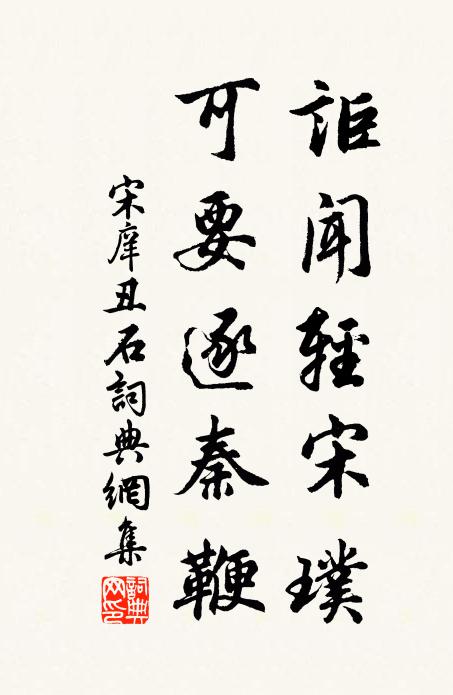 詎聞輕宋璞
可要逐秦鞭
宋庠丑石詞典網集
詞典網印